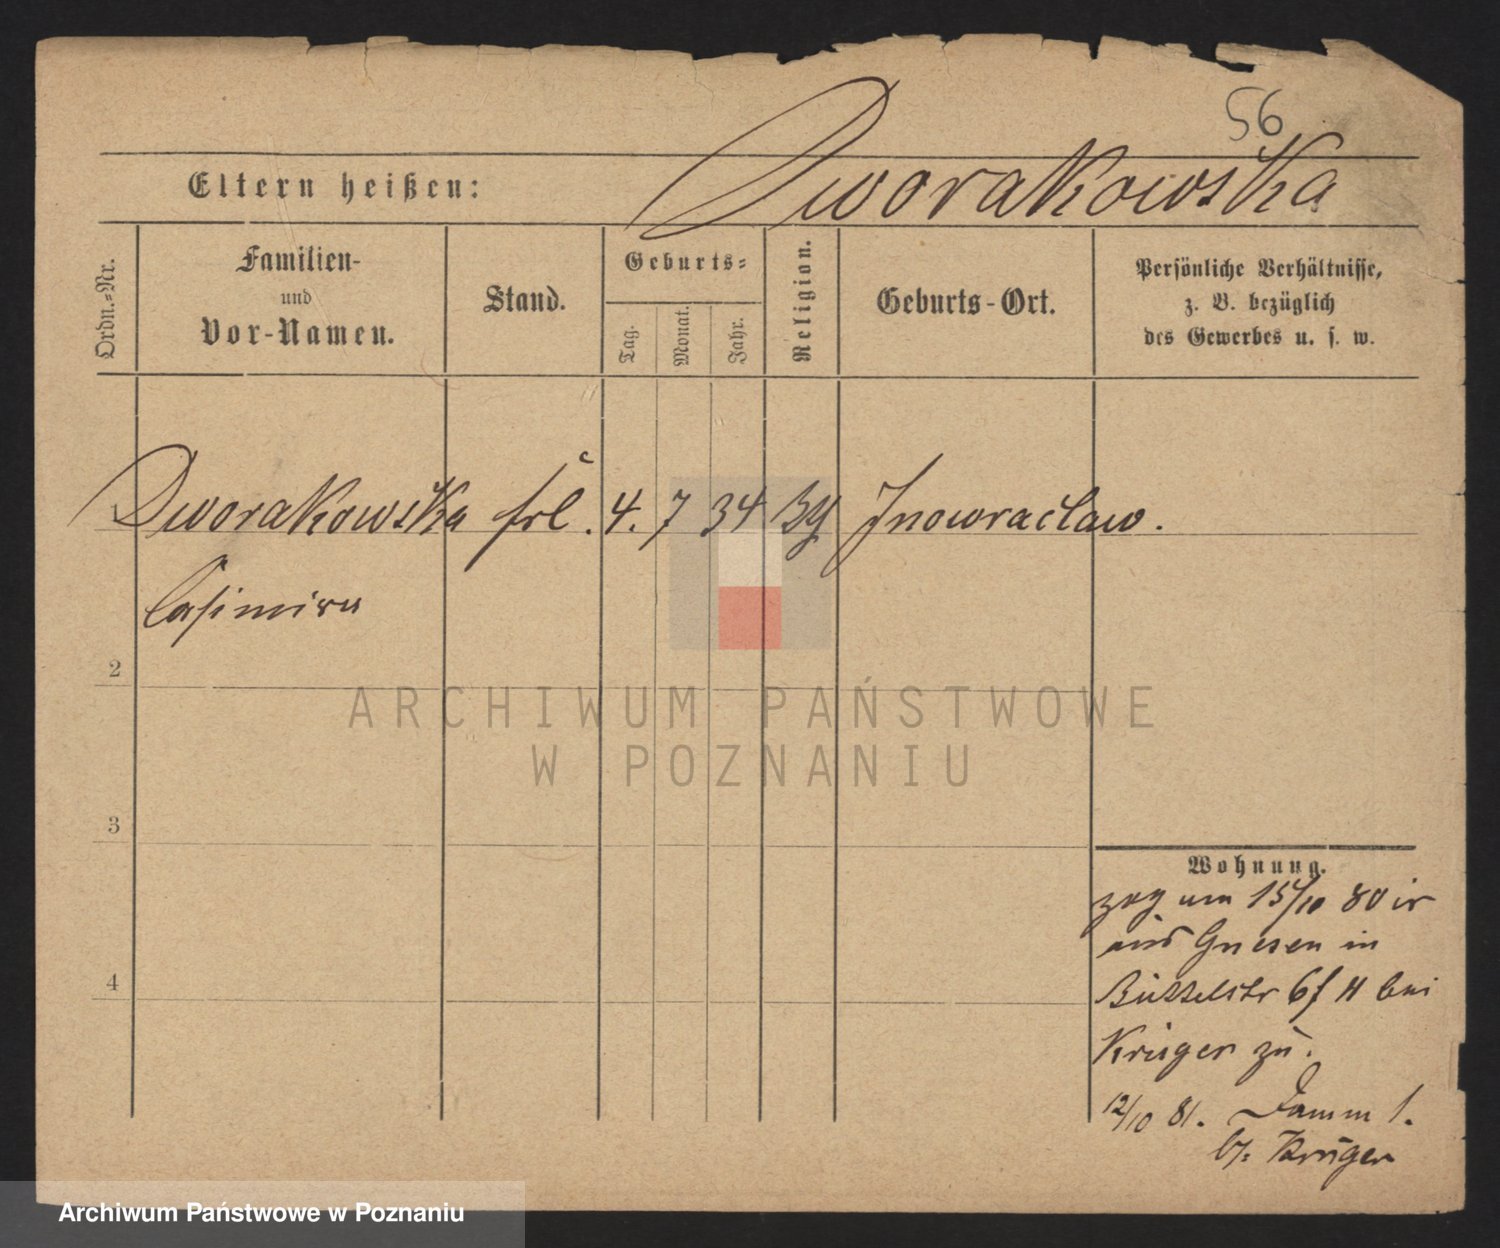 56
Eltern heißen: Dworakowska
Ordn.-Nr.
Familien-
und
Vor-Namen.
Stand.
Geburts-
Tag.
Monat.
Jahr.
Religion.
Geburts-Ort.
Persönliche Verhältnisse,
z. B. bezüglich
des Gewerbes u. s. w.
Dworakowska frl. 4. 7 34 Inowracław.
Casimira
2
3
4
Wohnung.
zog am 15/10 80
aus Gnesen in
Büttelstr 6 bei
Krüger zu.
12/10 81. Damm 1.
b/. Krüger
ARCHIWUM PAŃSTWOWE
W POZNANIU
Archiwum Państwowe w Poznaniu